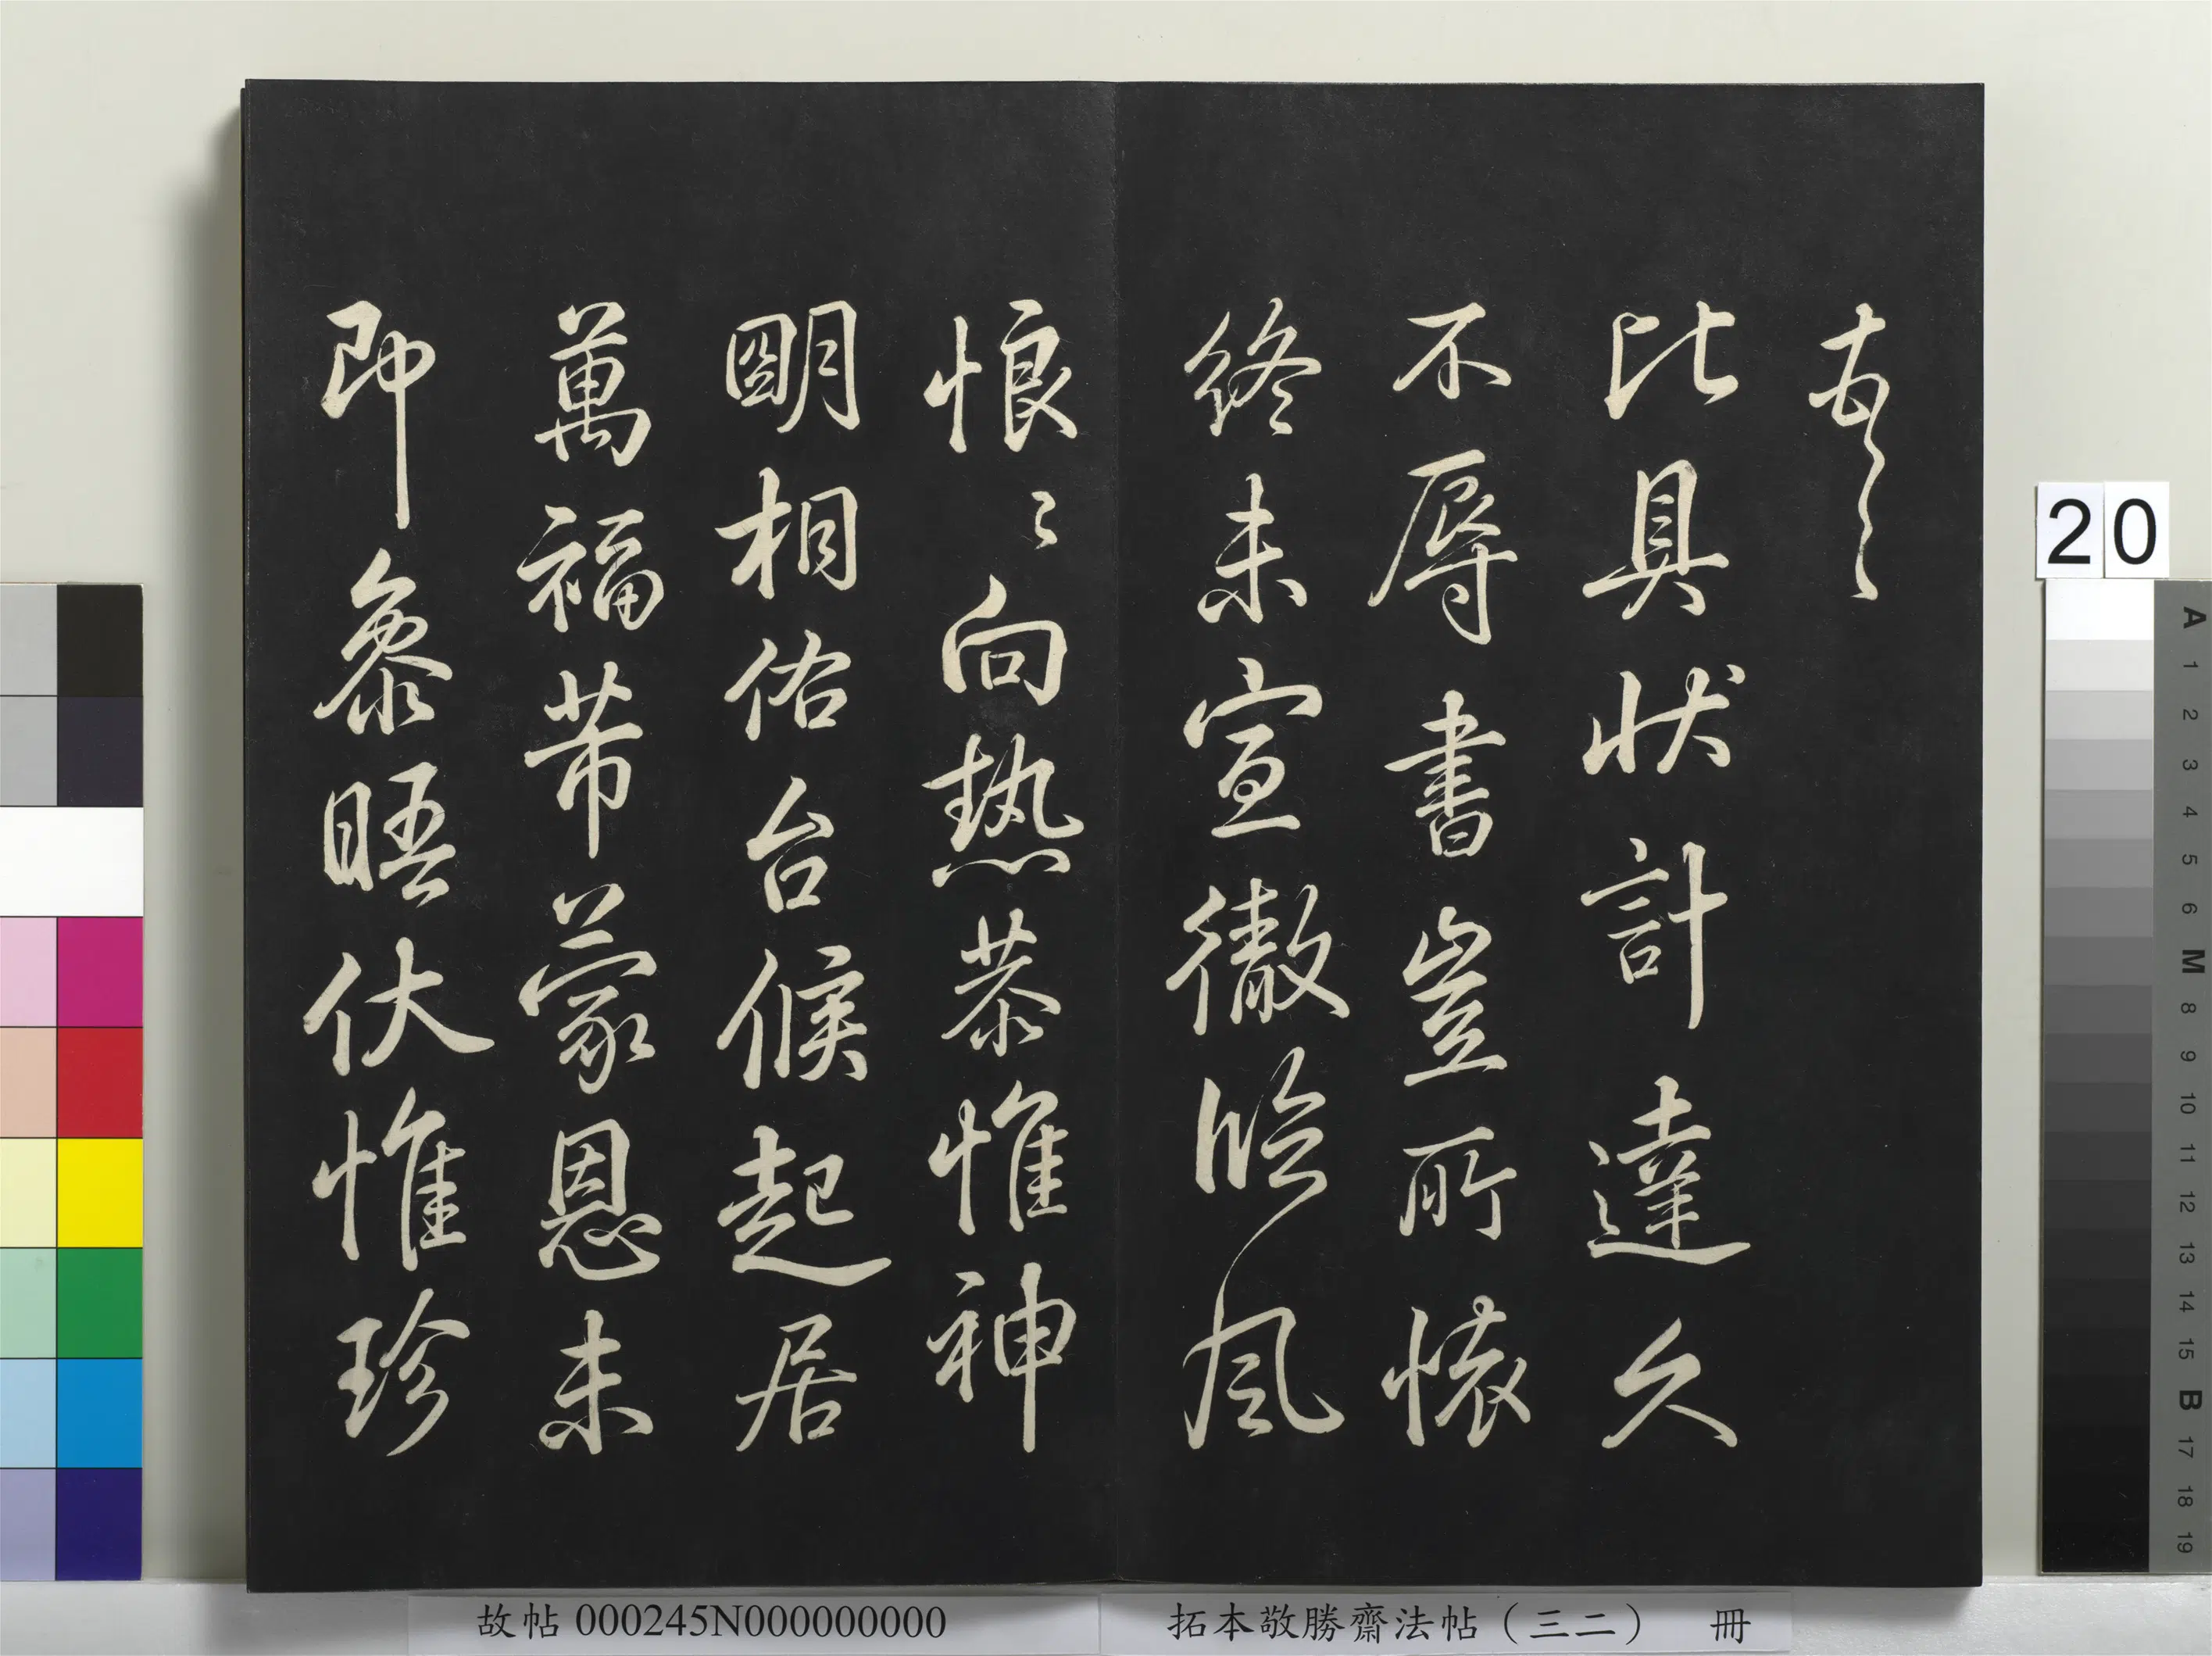 比具狀計達久
不辱書豈所懷
終未宣徹臨風
恨〻向热恭惟神
明相佑台候起居
萬福芾蒙恩未
即參晤伏惟珍
故帖 000245N000000000
拓本敬勝齋法帖（三二） 冊
20
A
1
2
3
4
5
6
M
8
9
10
11
12
13
14
15
B
17
18
19